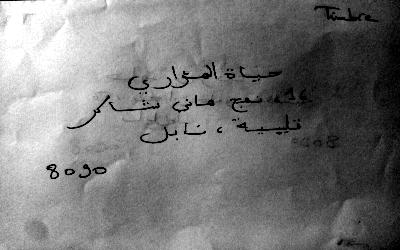 Timbre
حياة المزاري
نهج هاني شاكر
قليبية ، نابل
8090